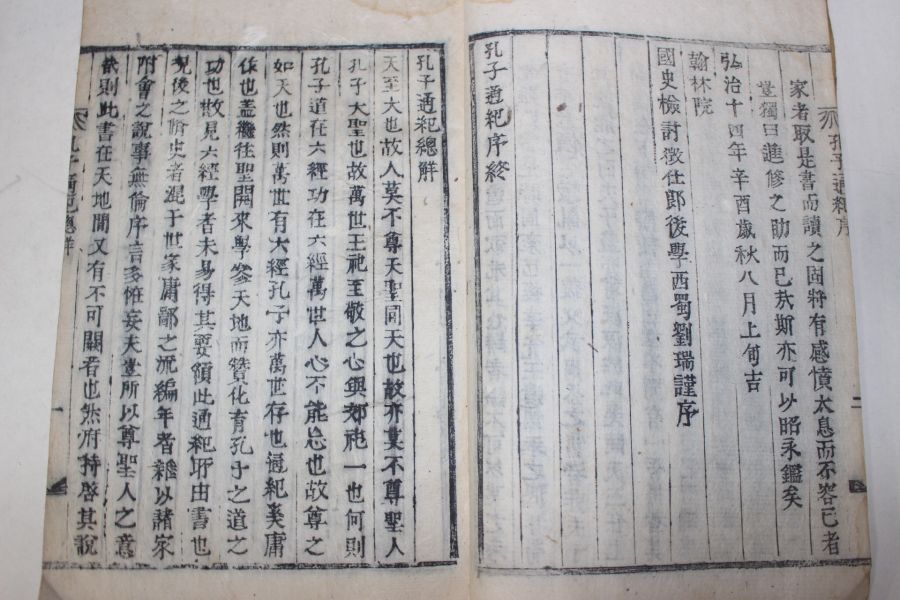 孔子通紀序
二
家者取是書而讀之固將有感憤太息而不容已者
豈獨曰進修之助而已㢤斯亦可以昭永鑑矣
弘治十四年辛酉歲秋八月上旬吉
翰林院
國史檢討徵仕郎後學西蜀劉瑞謹序
孔子通紀序終
孔子通紀總解
天至大也故人莫不尊天聖同天也故亦莫不尊聖人
孔子大聖也故萬世王祀至敬之心與郊祀一也何則
孔子道在六經功在六經萬世人心不能忘也故尊之
如天也然則萬世有六經孔子亦萬世存也通紀奚庸
作也盖繼往聖開來學參天地而贊化育孔子之道之
功也散見六經學者未易得其要領此通紀所由書也
況後之脩史者混于世家庸鄙之流編年者雜以諸家
附會之說事無倫序言多妄夫豈所以尊聖人之意
然則此書在天地間又有不可闕者也然府持啓其說
孔子通紀總解
一